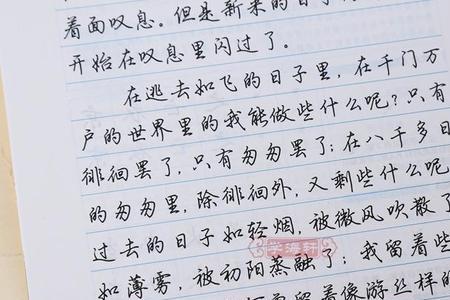 着面叹息。但是新来的日子
开始在叹息里闪过了。
在逃去如飞的日子里，在千门万
户的世界里的我能做些什么呢?只有
徘徊罢了，只有匆匆罢了;在八千多日
的匆匆里，除徘徊外，又剩些什么呢
过去的日子如轻烟，被微风吹散了
学海轩
如薄雾，被初阳蒸融了；我留着些
着像游丝样的